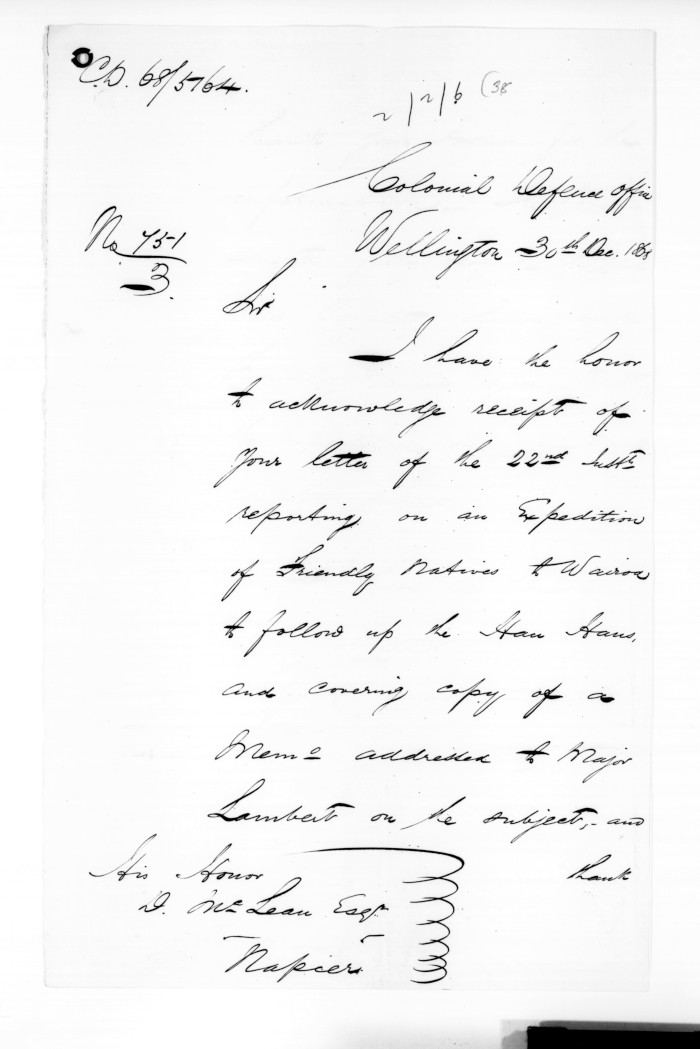 C.D. 68/5764.
2/2/6 (38
Colonial Defence Office
Wellington 30th Dec. 1868
No 751
3.
Sir
I have the honor
to acknowledge receipt of
your letter of the 22nd Inst.
reporting on an Expedition
of Friendly Natives to Wairoa
to follow up the Hau Haus,
and covering copy of a
Memo addressed to Major
Lambert on the subject, - and
thank
His Honor
D. McLean Esqr
Napier